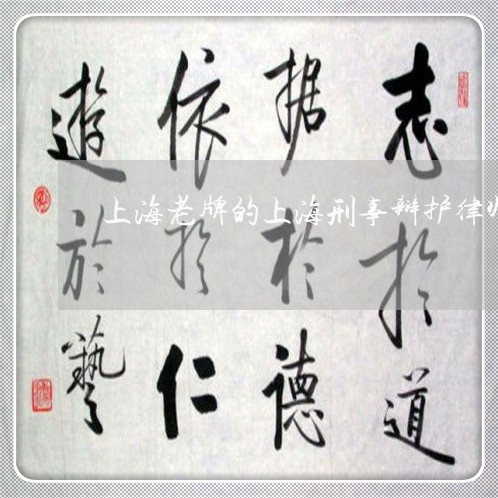 志於道
据於德
依於仁
遊於藝
上海老牌的上海刑事辩护律